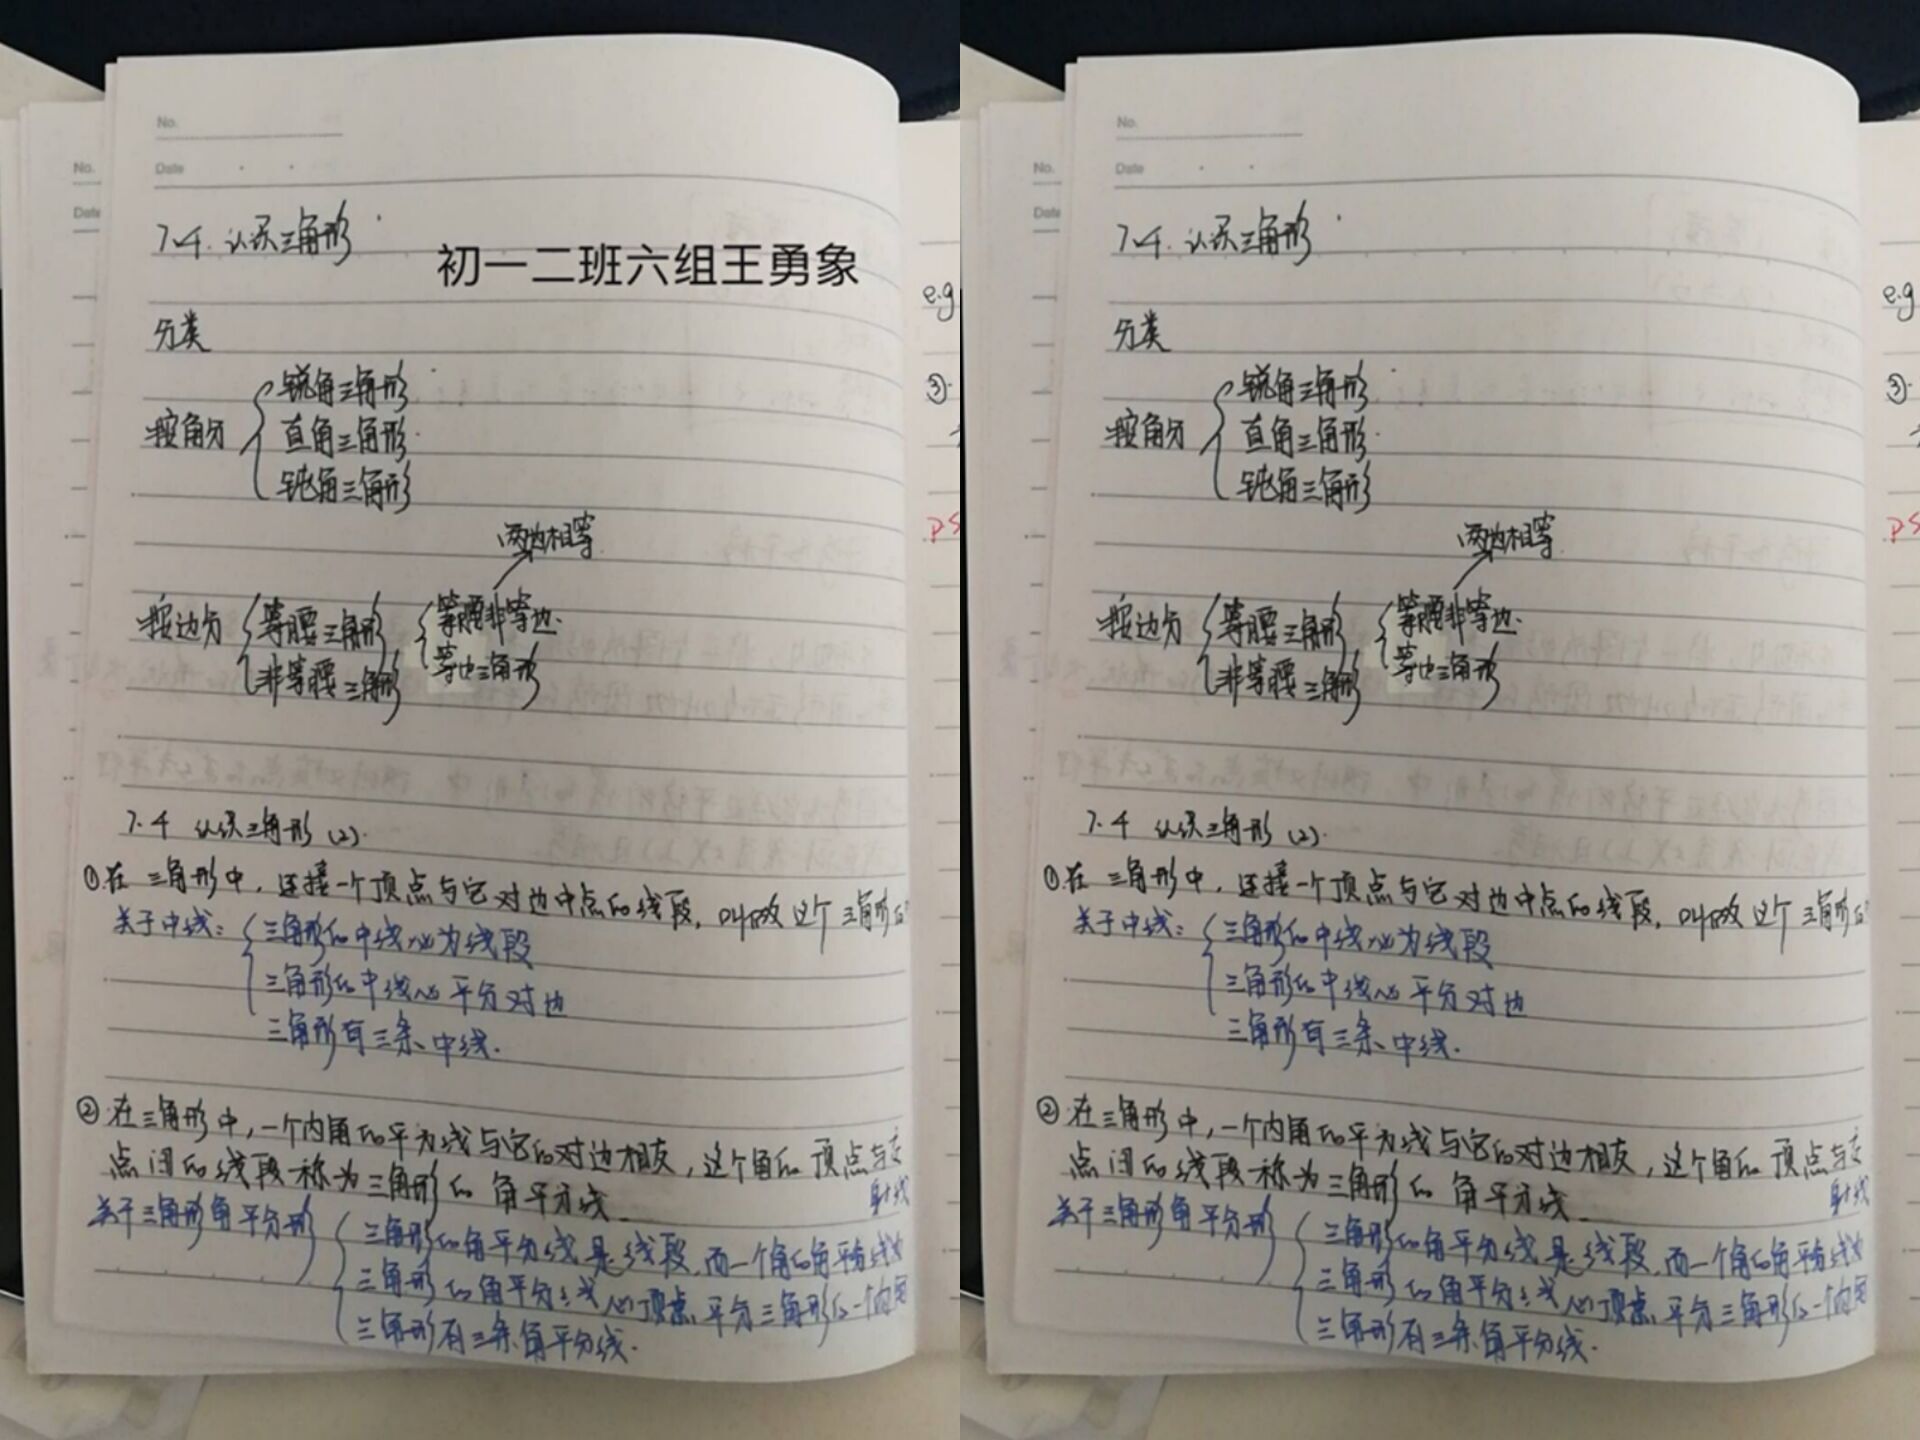 No.
Date
No.
Date
7.4. 认识三角形
初一二班六组王勇象
分类
按角分
锐角三角形
直角三角形
钝角三角形
两边相等
按边分
等腰三角形
非等腰三角形
等腰非等边
等边三角形
7.4 认识三角形(2).
①在三角形中，连接一个顶点与它对边中点的线段，叫做这个三角形的
关于中线：
三角形的中线必为线段
三角形的中线必平分对边
三角形有三条中线.
②在三角形中，一个内角的平分线与它的对边相交，这个角的顶点与交
点间的线段称为三角形的角平分线
射线
关于三角形角平分形
三角形的角平分线是线段，而一个角的角平分线为
三角形的角平分线必过顶点，平分三角形的一个内角
三角形有三条角平分线.
e.g
③.
ps
No.
Date
No.
Date
7.4. 认识三角形
分类
按角分
锐角三角形
直角三角形
钝角三角形
两边相等
按边分
等腰三角形
非等腰三角形
等腰非等边
等边三角形
7.4 认识三角形(2).
①在三角形中，连接一个顶点与它对边中点的线段，叫做这个三角形的
关于中线：
三角形的中线必为线段
三角形的中线必平分对边
三角形有三条中线.
②在三角形中，一个内角的平分线与它的对边相交，这个角的顶点与交
点间的线段称为三角形的角平分线
射线
关于三角形角平分形
三角形的角平分线是线段，而一个角的角平分线为
三角形的角平分线必过顶点，平分三角形的一个内角
三角形有三条角平分线.
e.g
③.
ps